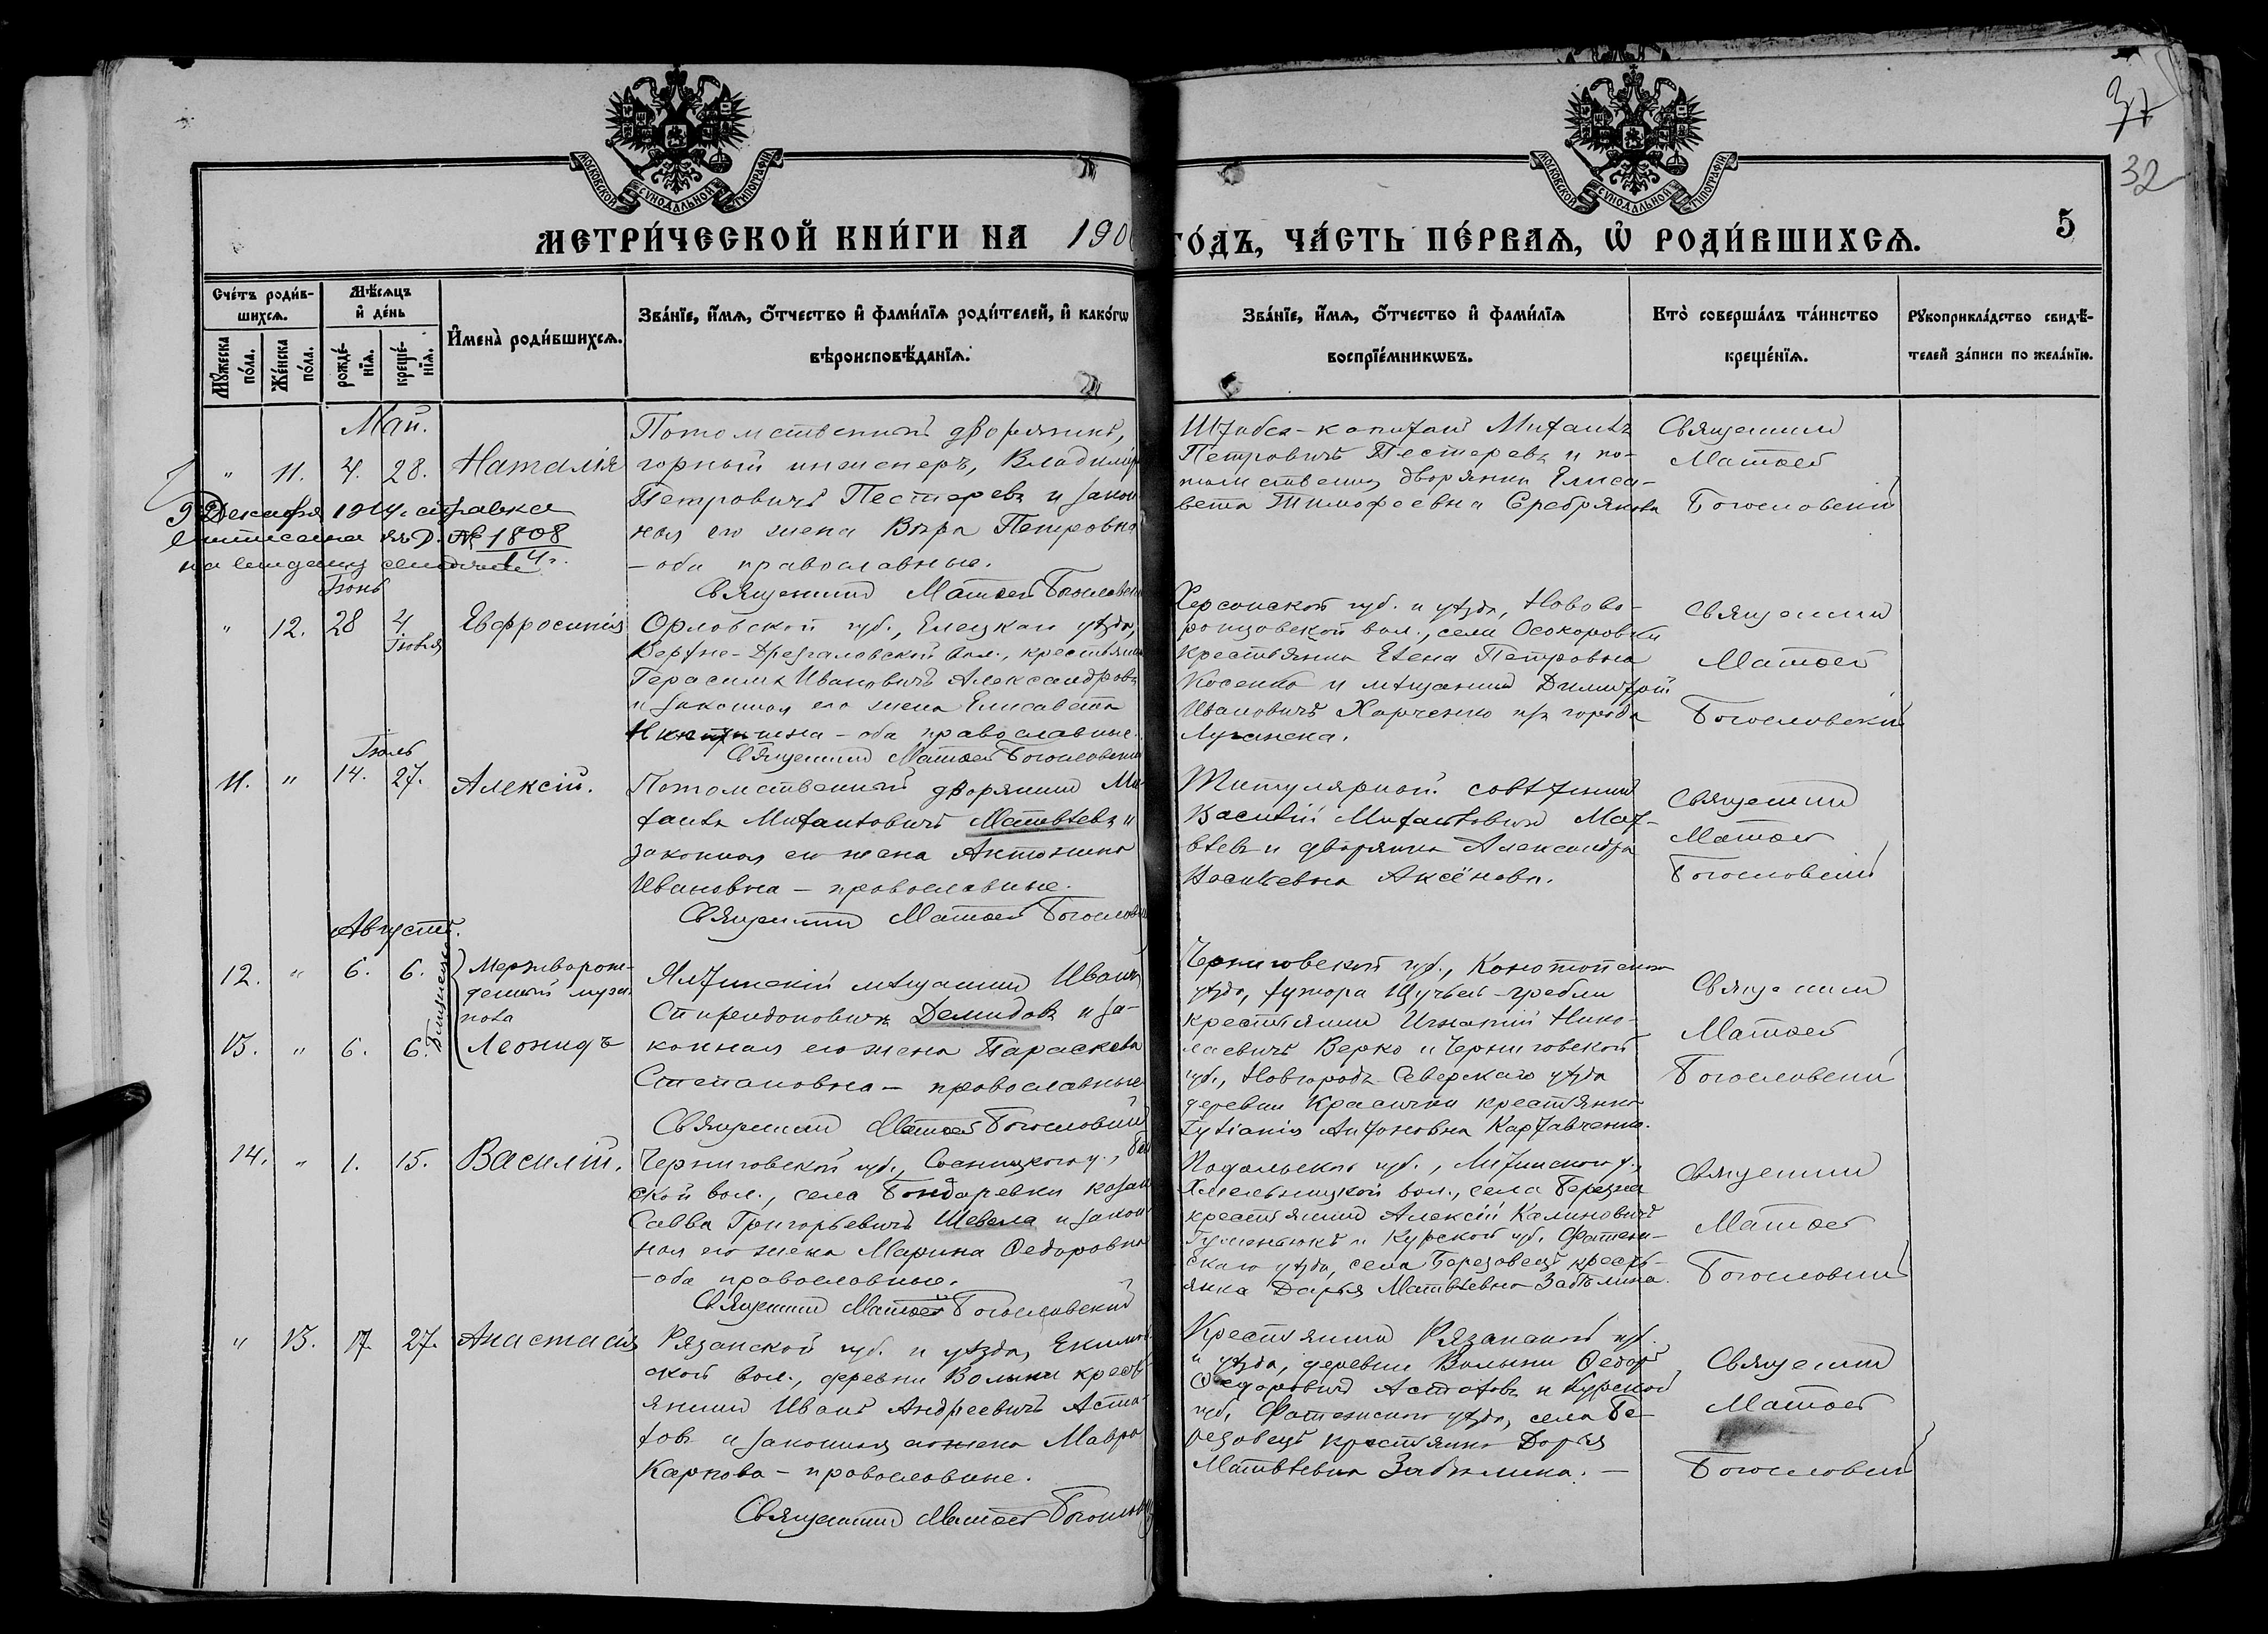 37
32
МОСКОВСКОЙ СѴНОДАЛЬНОЙ ТИПОГРАФІИ
МОСКОВСКОЙ СѴНОДАЛЬНОЙ ТИПОГРАФІИ
МЕТРИ́ЧЕСКОЙ КНИ́ГИ НА 190
ГО́ДЪ, ЧА́СТЬ ПЕ́РВАѦ, Ѡ҆ РОДИ́ВШИХСѦ.
5
Сче́тъ роди́в-
шихсѧ.
Мѣ́сѧцъ
и҆ де́нь
Мꙋ́жеска по́ла.
Же́нска по́ла.
рожде́-
нїѧ.
креще́-
нїѧ.
И҆мена̀ роди́вшихсѧ.
Зва́нїе, и҆́мѧ, ѻ҆́тчество и҆ фами́лїѧ роди́телей, и҆ како́гѡ
вѣроисповѣ́данїѧ.
Зва́нїе, и҆́мѧ, ѻ҆́тчество и҆ фами́лїѧ
воспрїе́мникѡвъ.
Кто̀ соверша́лъ та́инство
креще́нїѧ.
Рꙋкоприкла́дство свидѣ́-
телей за́писи по жела́нїю.
Май.
" 11. 4. 28. Наталія
Потомственный дворянинъ,
горный инженеръ, Владиміръ
Петровичъ Пестеревъ и закон
ная его жена Вѣра Петровна
- оба православные.
Священникъ Матвей Богословскій
Штабсъ-капитанъ Михаилъ
Петровичъ Пестеревъ и по-
томственная дворянка Елиса-
вета Тимофеевна Серебрякова
Священникъ
Матвей
Богословскій
9 Декабря 1914 справка
№ 1808
14 г.
Іюнь
" 12. 28 4 Іюля Евфросинія
Орловской губ., Елецкаго уѣзда,
Верхне-Дрезгаловской вол., крестьянинъ
Герасимъ Ивановичъ Александровъ
и законная его жена Елисавета
Никитична - оба православные.
Священникъ Матвей Богословскій
Херсонской губ. и уѣзда, Ново-во-
ронцовской вол., села Осокоровки
крестьянка Елена Петровна
Косенко и мѣщанинъ Димитрій
Ивановичъ Харченко изъ города
Луганска.
Священникъ
Матвей
Богословскій
Іюль
11. " 14. 27. Алексій.
Потомственный дворянинъ Ми
хаилъ Михаиловичъ Матвѣевъ и
законная его жена Антонина
Ивановна - православные.
Священникъ Матвей Богослов
Титулярный совѣтникъ
Василій Михаиловичъ Мат-
вѣевъ и дворянка Александра
Васильевна Аксёнова.
Священникъ
Матвей
Богословскій
Августъ.
12. " 6. 6. Мертворож-
денный муж.
пола
13. " 6. 6. Леонидъ
Близнецы
Ялтинскій мѣщанинъ Иванъ
Спиридоновичъ Демидовъ и за-
конная его жена Параскева
Степановна - православные
Священникъ Матвей Богословскій
Черниговской губ., Конотопскаго
уѣзда, хутора Щучьей-гребли
крестьянинъ Игнатій Нико-
лаевичъ Верко и Черниговской
губ., Новгородъ-Северскаго уѣзда
деревни Красички крестьянка
Антоновна Картавченко.
Священникъ
Матвей
Богословскій
14. " 1. 15. Василій.
Черниговской губ., Сосницкаго у.,
ской вол., села Бондаревки козакъ
Савва Григорьевичъ Шевела и закон
ная его жена Марина Ѳедоровна
- оба православные.
Священникъ Матвей Богословскій
Подольской губ., Литинскаго у.,
Хмельницкой вол., села Березна
крестьянинъ Алексій Калиновичъ
Гуменюкъ и Курской губ. Фатеж-
скаго уѣзда, села Березовецъ кресть-
янка Дарья Матвѣевна Забѣлина.
Священникъ
Матвей
Богословскій
" 13. 17. 27. Анастасія
Рязанской губ. и уѣзда, Екимов
ской вол., деревни Волыни кресть
янинъ Иванъ Андреевичъ Аста-
фовъ и законная его жена Мавра
Карпова - православные.
Священникъ Матвей Богословскій
Крестьянинъ Рязанской губ.
и уѣзда, деревни Волыни Ѳедоръ
Ѳедоровичъ Астафовъ и Курской
губ. Фатежскаго уѣзда, села Бе-
резовецъ крестьянка Дарья
Матвѣевна Забѣлина. -
Священникъ
Матвей
Богословскій